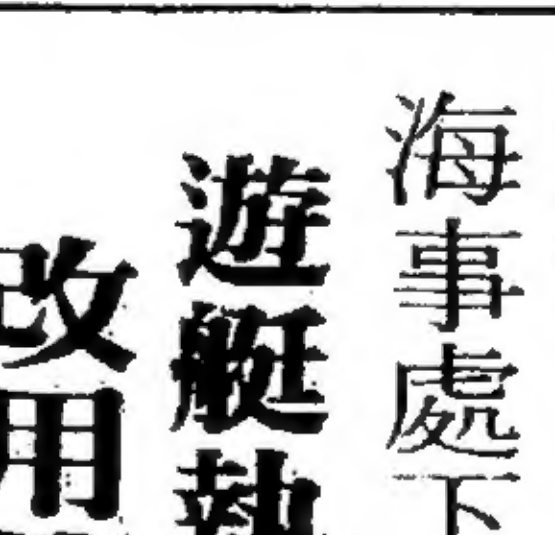 海事處下
遊艇執
改用